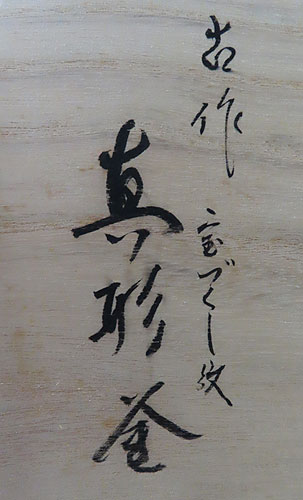 古作
宝づくし紋
真形釜